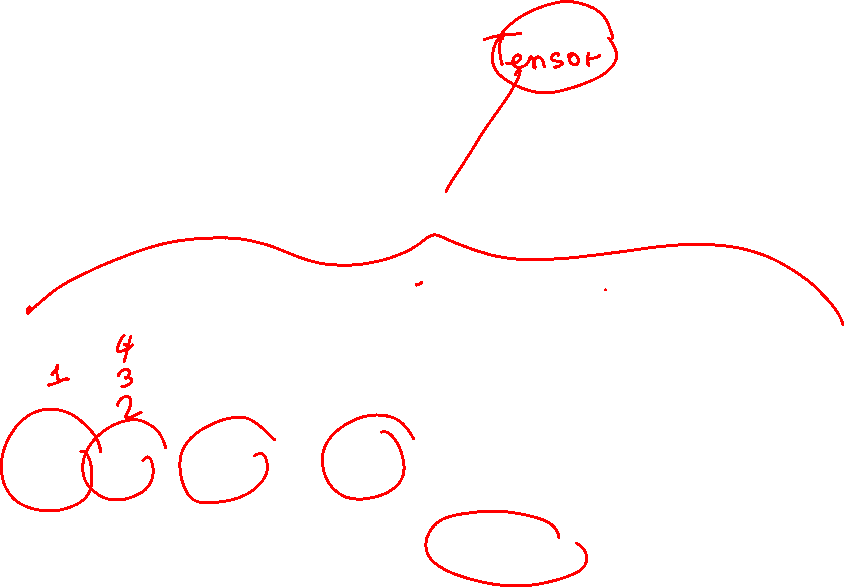 Tensor
4
1 3
2